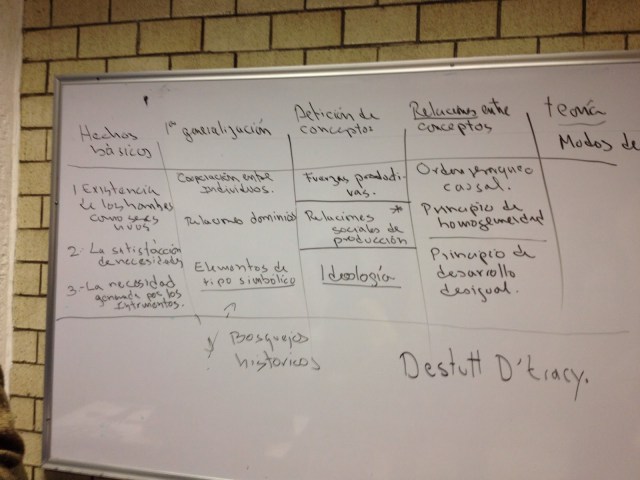 Hechos básicos
1ª generalización
Detición de conceptos
Relaciones entre conceptos
teoría
Modos de
1. Existencia
de los hombres
como seres
vivos
2.- La satisfacción
de necesidades
3.- La necesidad
generada por los
instrumentos.
Cooperación entre
individuos.
Relaciones dominios
Elementos de
tipo simbólico
Fuerzas producti-
vas.
Relaciones *
sociales de
producción
Ideología
Orden jerárquico
causal.
Principio de
homogeneidad
Principio de
desarrollo
desigual.
y Bosquejos
históricos
Destutt D'tracy.